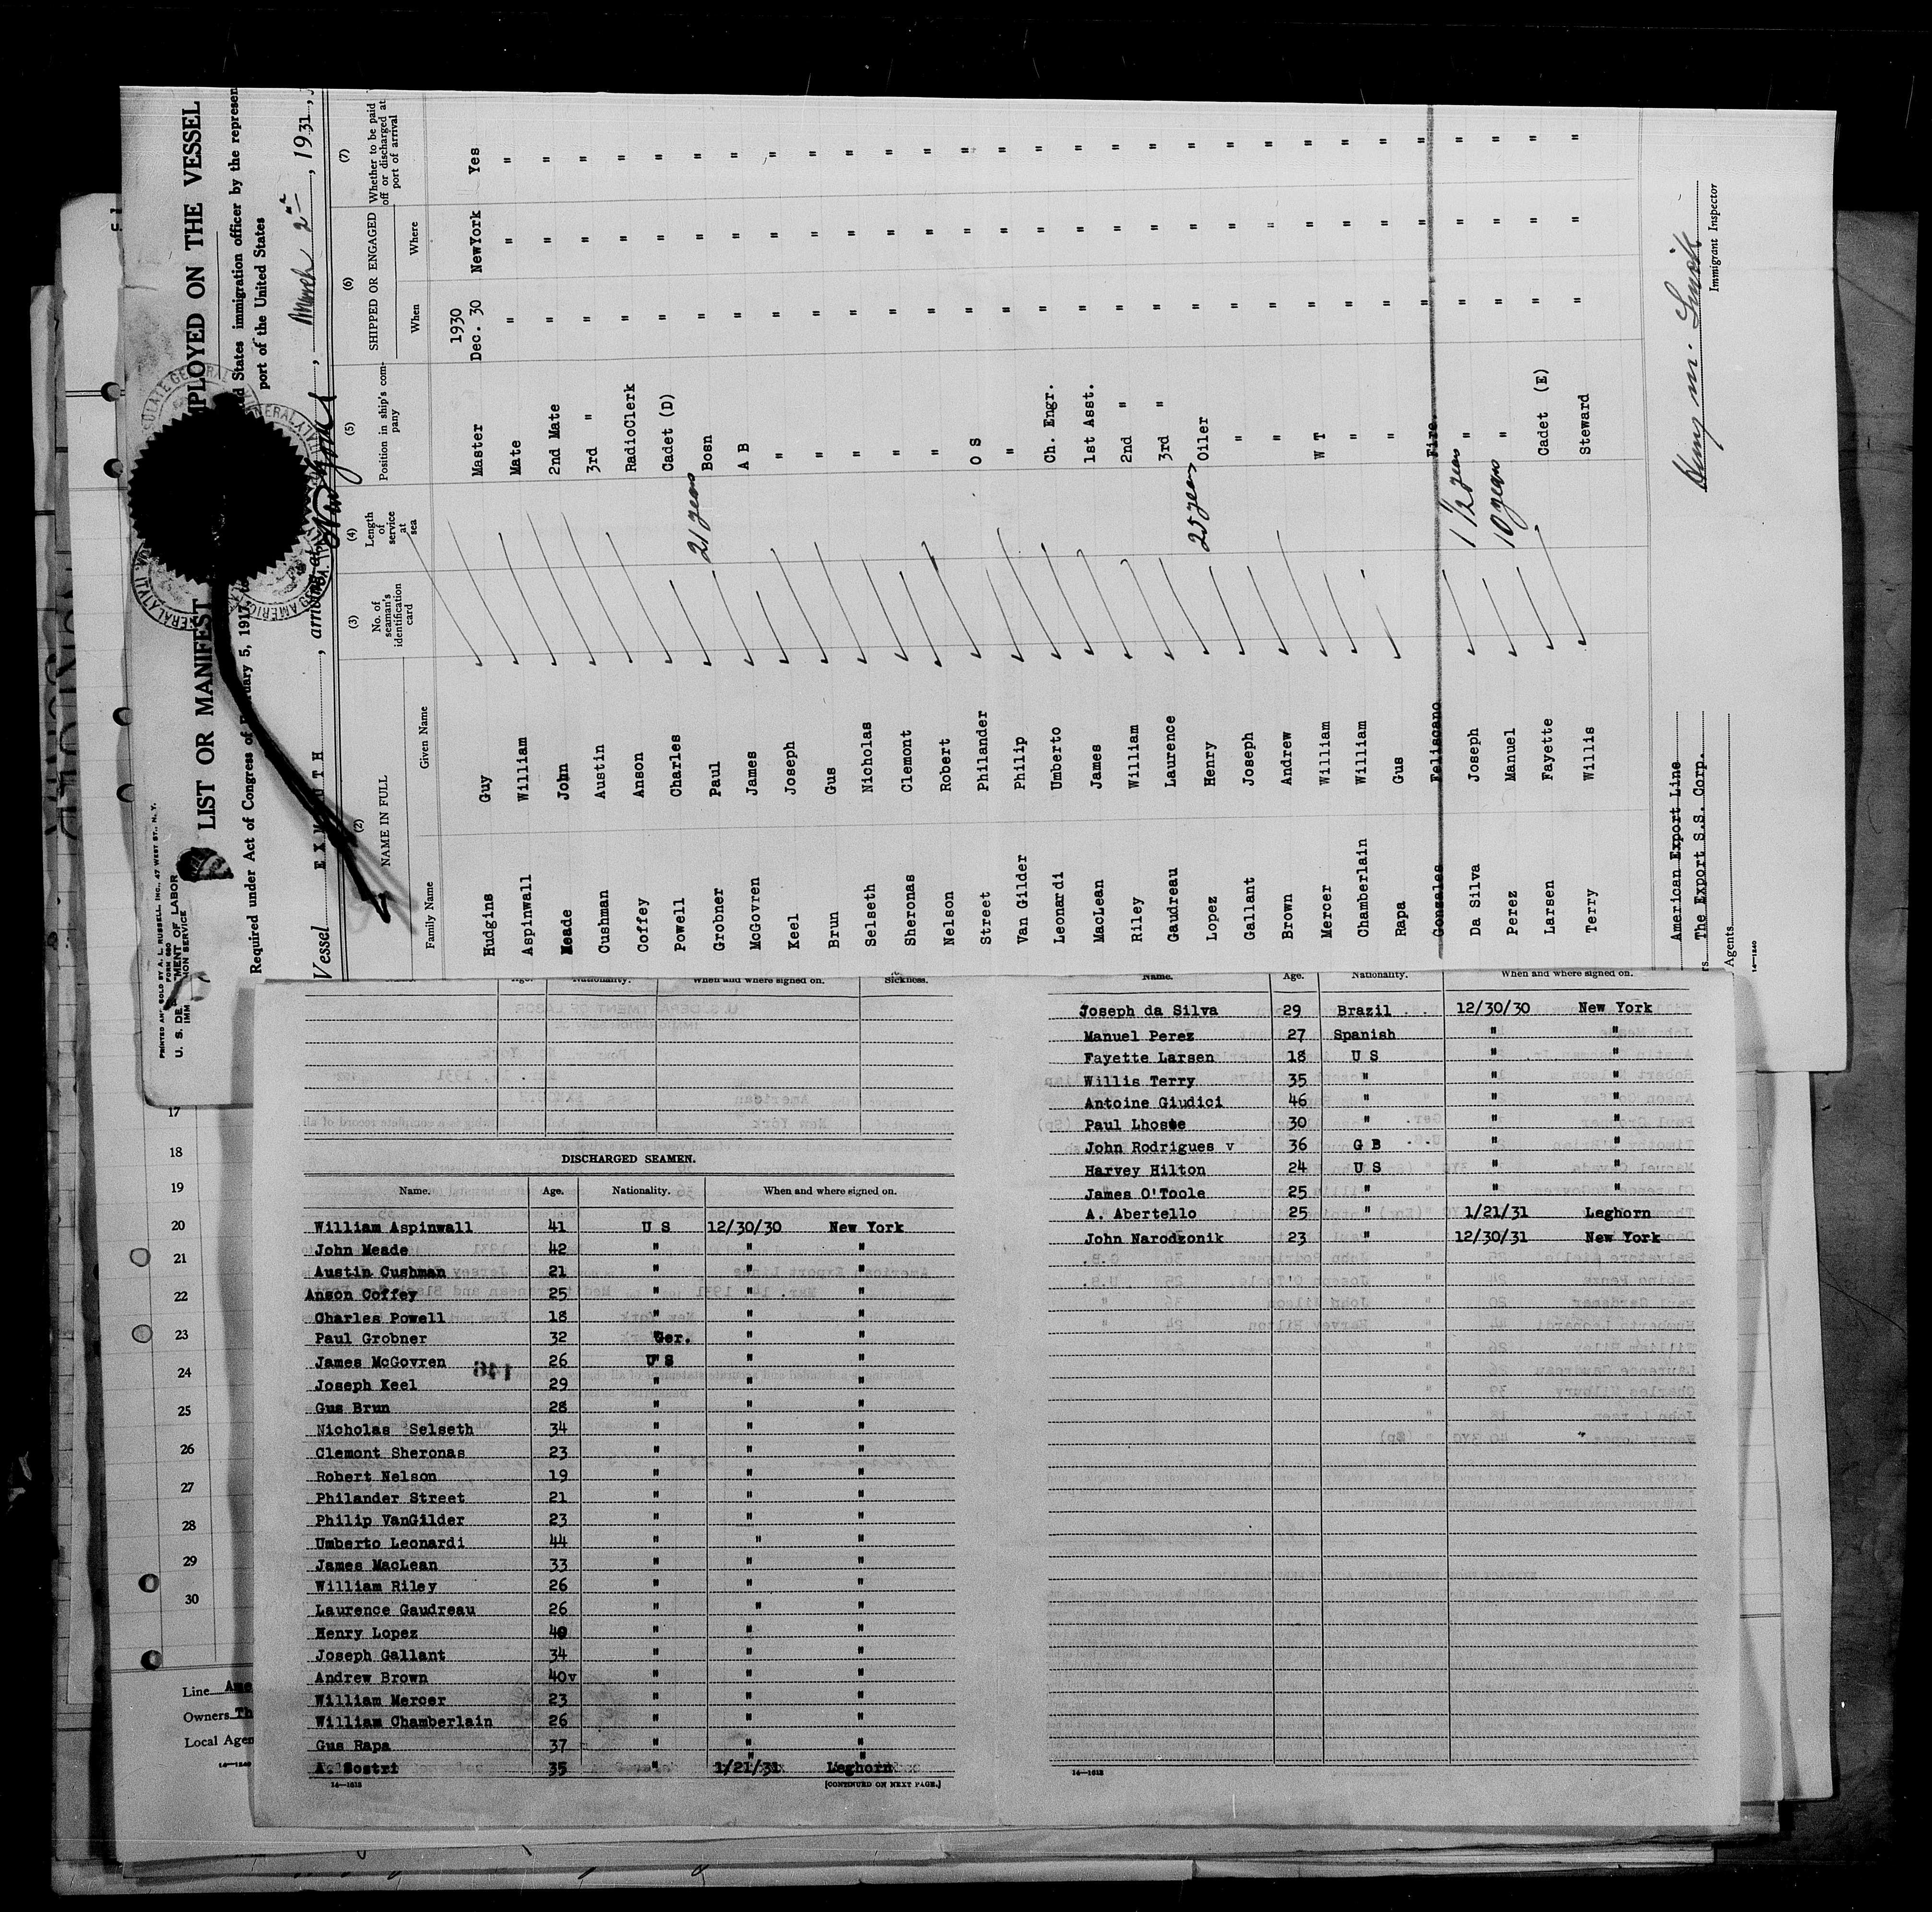 PRINTED AND SOLD BY A. L. RUSSELL, INC., 47 WEST ST., N. Y.
FORM 680
U. S. DE MENT OF LABOR
IMM ION SERVICE
LIST OR MANIFEST PLOYED ON THE VESSEL
Required under Act of Congress of February 5, 1917, States immigration officer by the represen
port of the United States
Vessel EXMOUTH, arriving at New York, March 2nd, 1931
(2) (3) (4) (5) (6) (7)
NAME IN FULL
Family Name Given Name
No. of seaman's identification card
Length of service at sea
Position in ship's company
SHIPPED OR ENGAGED
When Where
Whether to be paid off or discharged at port of arrival
1930
Hudgins Guy Master Dec. 30 NewYork Yes
Aspinwall William Mate " " "
Meade John 2nd Mate " " "
Cushman Austin 3rd " " " "
Coffey Anson RadioClerk " " "
Powell Charles Cadet (D) " " "
Grobner Paul 21 years Bosn " " "
McGovren James A B " " "
Keel Joseph " " " "
Brun Gus " " " "
Selseth Nicholas " " " "
Sheronas Clemont " " " "
Nelson Robert " " " "
Street Philander O S " " "
Van Gilder Philip " " " "
Leonardi Umberto Ch. Engr. " " "
MacLean James 1st Asst. " " "
Riley William 2nd " " " "
Gaudreau Laurence 3rd " " " "
Lopez Henry 25 years Oiler " " "
Gallant Joseph " " " "
Brown Andrew " " " "
Mercer William W T " " "
Chamberlain William " " " "
Rapa Gus " " " "
Gonzales Feliscano Fire. " " "
Da Silva Joseph 1 1/2 years " " " "
Perez Manuel 10 years " " " "
Larsen Fayette Cadet (E) " " "
Terry Willis Steward " " "
American Export Line
The Export S.S. Corp.
Agents
Henry M. Smith
Immigrant Inspector
14—1240
17
18
19
20
21
22
23
24
25
26
27
28
29
30
Line Ame
Owners Th
Local Agen
14—1240
When and where signed on. Sickness.
DISCHARGED SEAMEN.
Name. Age. Nationality. When and where signed on.
William Aspinwall 41 U S 12/30/30 New York
John Meade 42 " " "
Austin Cushman 21 " " "
Anson Coffey 25 " " "
Charles Powell 18 " " "
Paul Grobner 32 Ger. " "
James McGovren 26 U S " "
Joseph Keel 29 " " "
Gus Brun 28 " " "
Nicholas Selseth 34 " " "
Clemont Sheronas 23 " " "
Robert Nelson 19 " " "
Philander Street 21 " " "
Philip VanGilder 23 " " "
Umberto Leonardi 44 " " "
James MacLean 33 " " "
William Riley 26 " " "
Laurence Gaudreau 26 " " "
Henry Lopez 40 " " "
Joseph Gallant 34 " " "
Andrew Brown 40v " " "
William Mercer 23 " " "
William Chamberlain 26 " " "
Gus Rapa 37 " " "
A. Sostri 35 " 1/21/31 Leghorn
14—1618 [CONTINUED ON NEXT PAGE.]
Name. Age. Nationality. When and where signed on.
Joseph da Silva 29 Brazil 12/30/30 New York
Manuel Perez 27 Spanish " "
Fayette Larsen 18 U S " "
Willis Terry 35 " " "
Antoine Giudici 46 " " "
Paul Lhoste 30 " " "
John Rodrigues v 36 G B " "
Harvey Hilton 24 U S " "
James O'Toole 25 " " "
A. Abertello 25 " 1/21/31 Leghorn
John Narodzonik 23 " 12/30/31 New York
14—1618